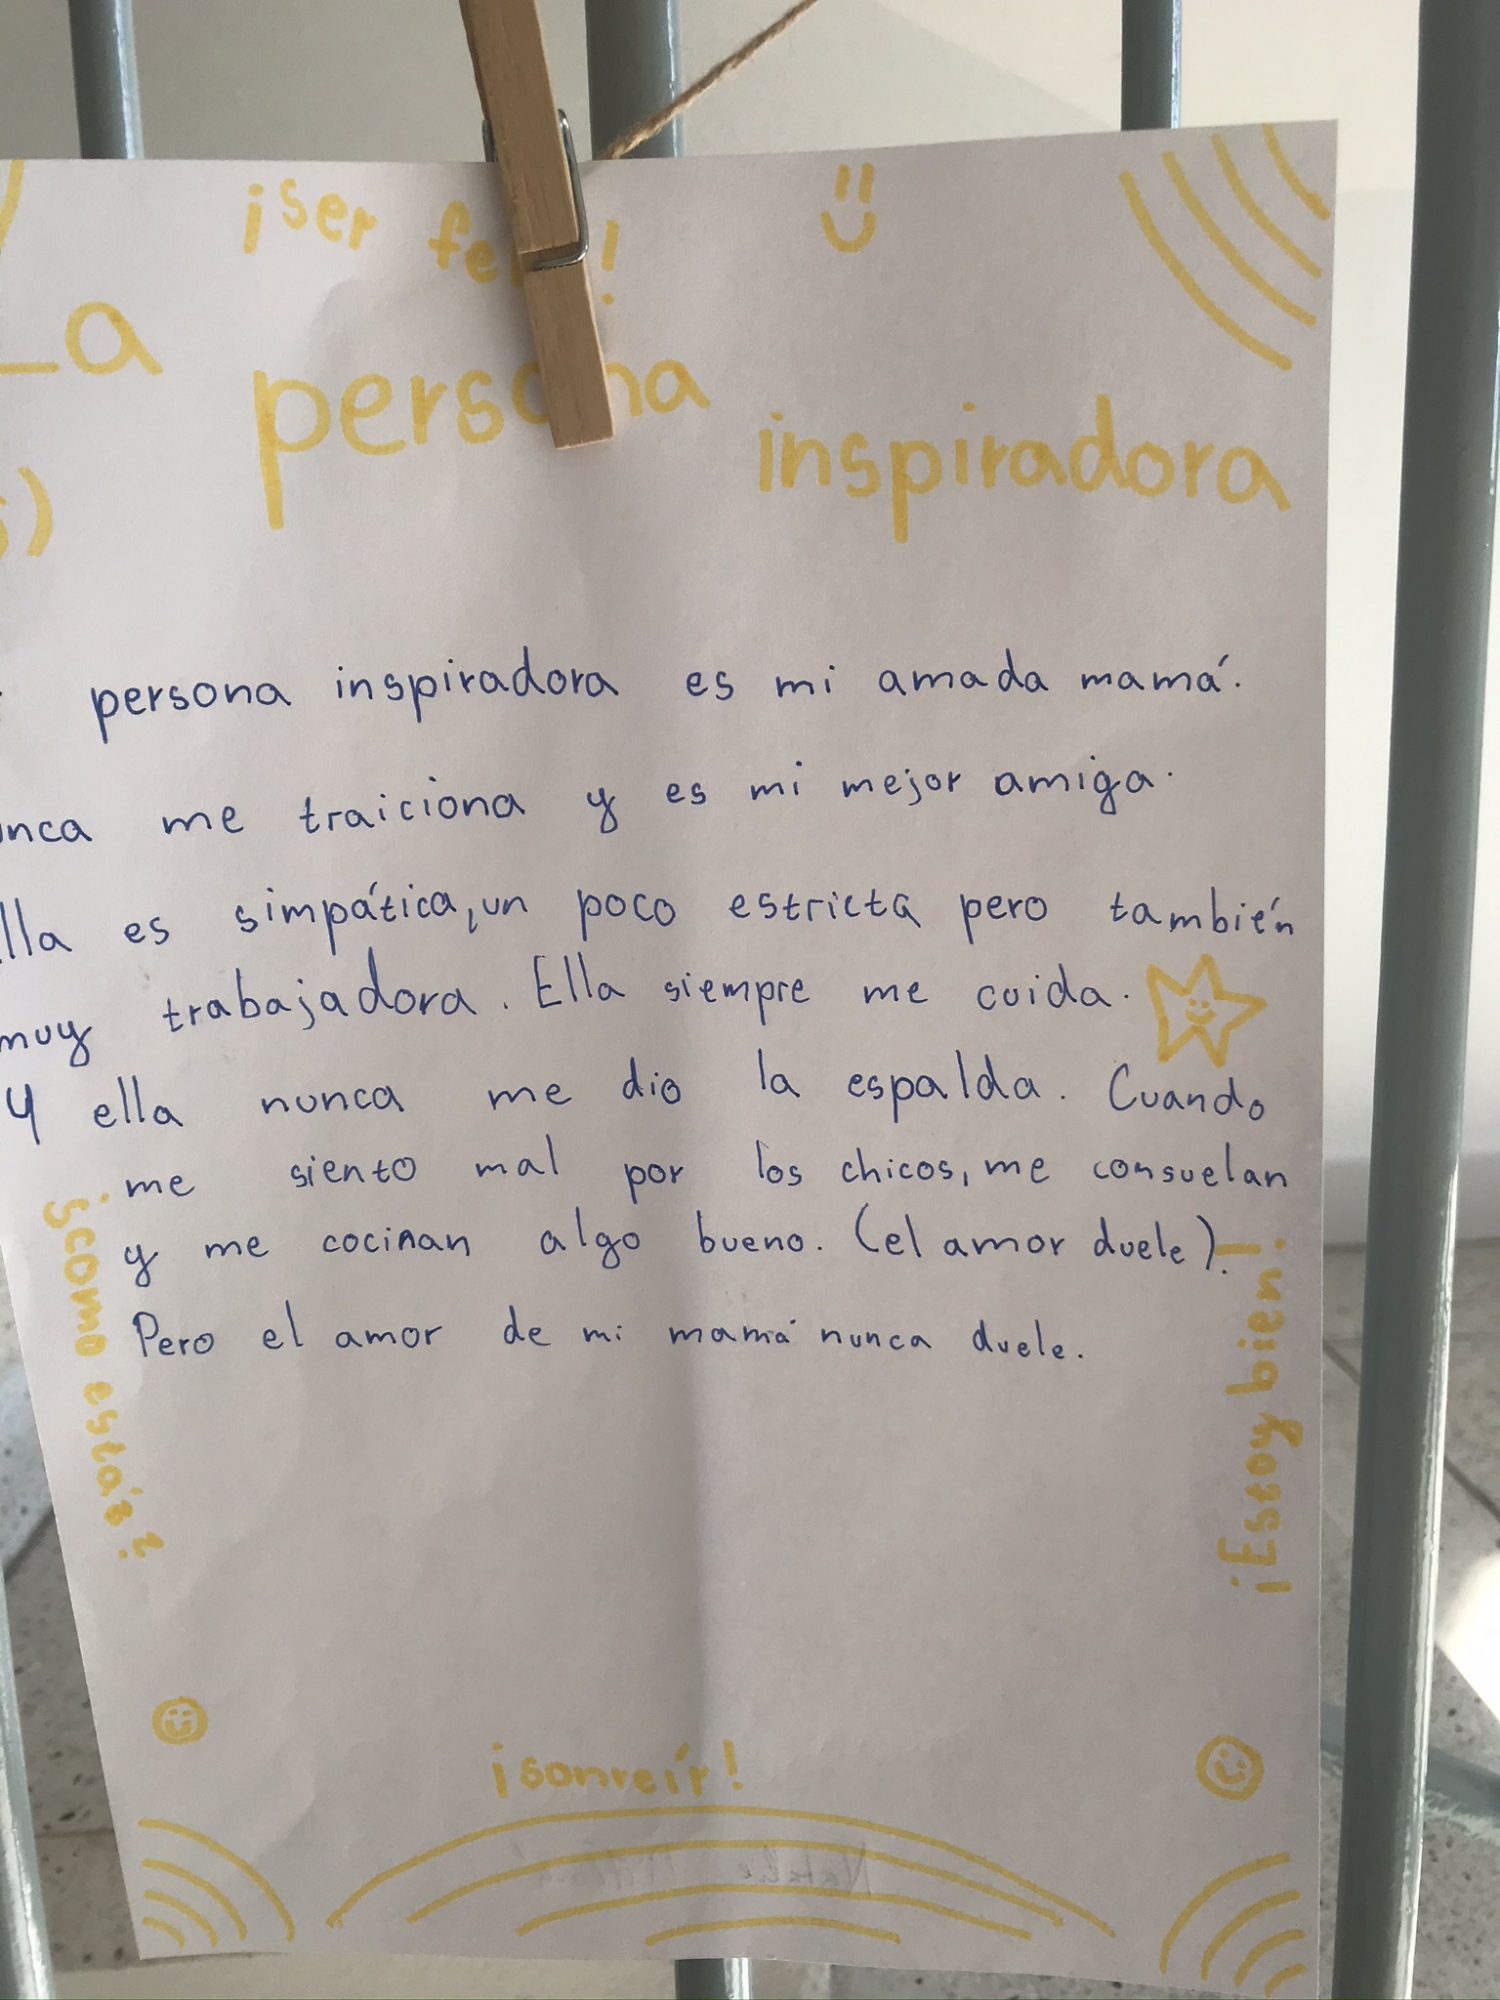 ¡ser fe !
La
persona
inspiradora
s)
persona inspiradora es mi amada mamá.
unca me traiciona y es mi mejor amiga.
lla es simpática, un poco estricta pero también
muy trabajadora. Ella siempre me cuida.
Y ella nunca me dio la espalda. Cuando
me siento mal por los chicos, me consuelan
y me cocinan algo bueno. (el amor duele).
Pero el amor de mi mamá nunca duele.
¿como estás?
¡Estoy bien!
¡sonreír!